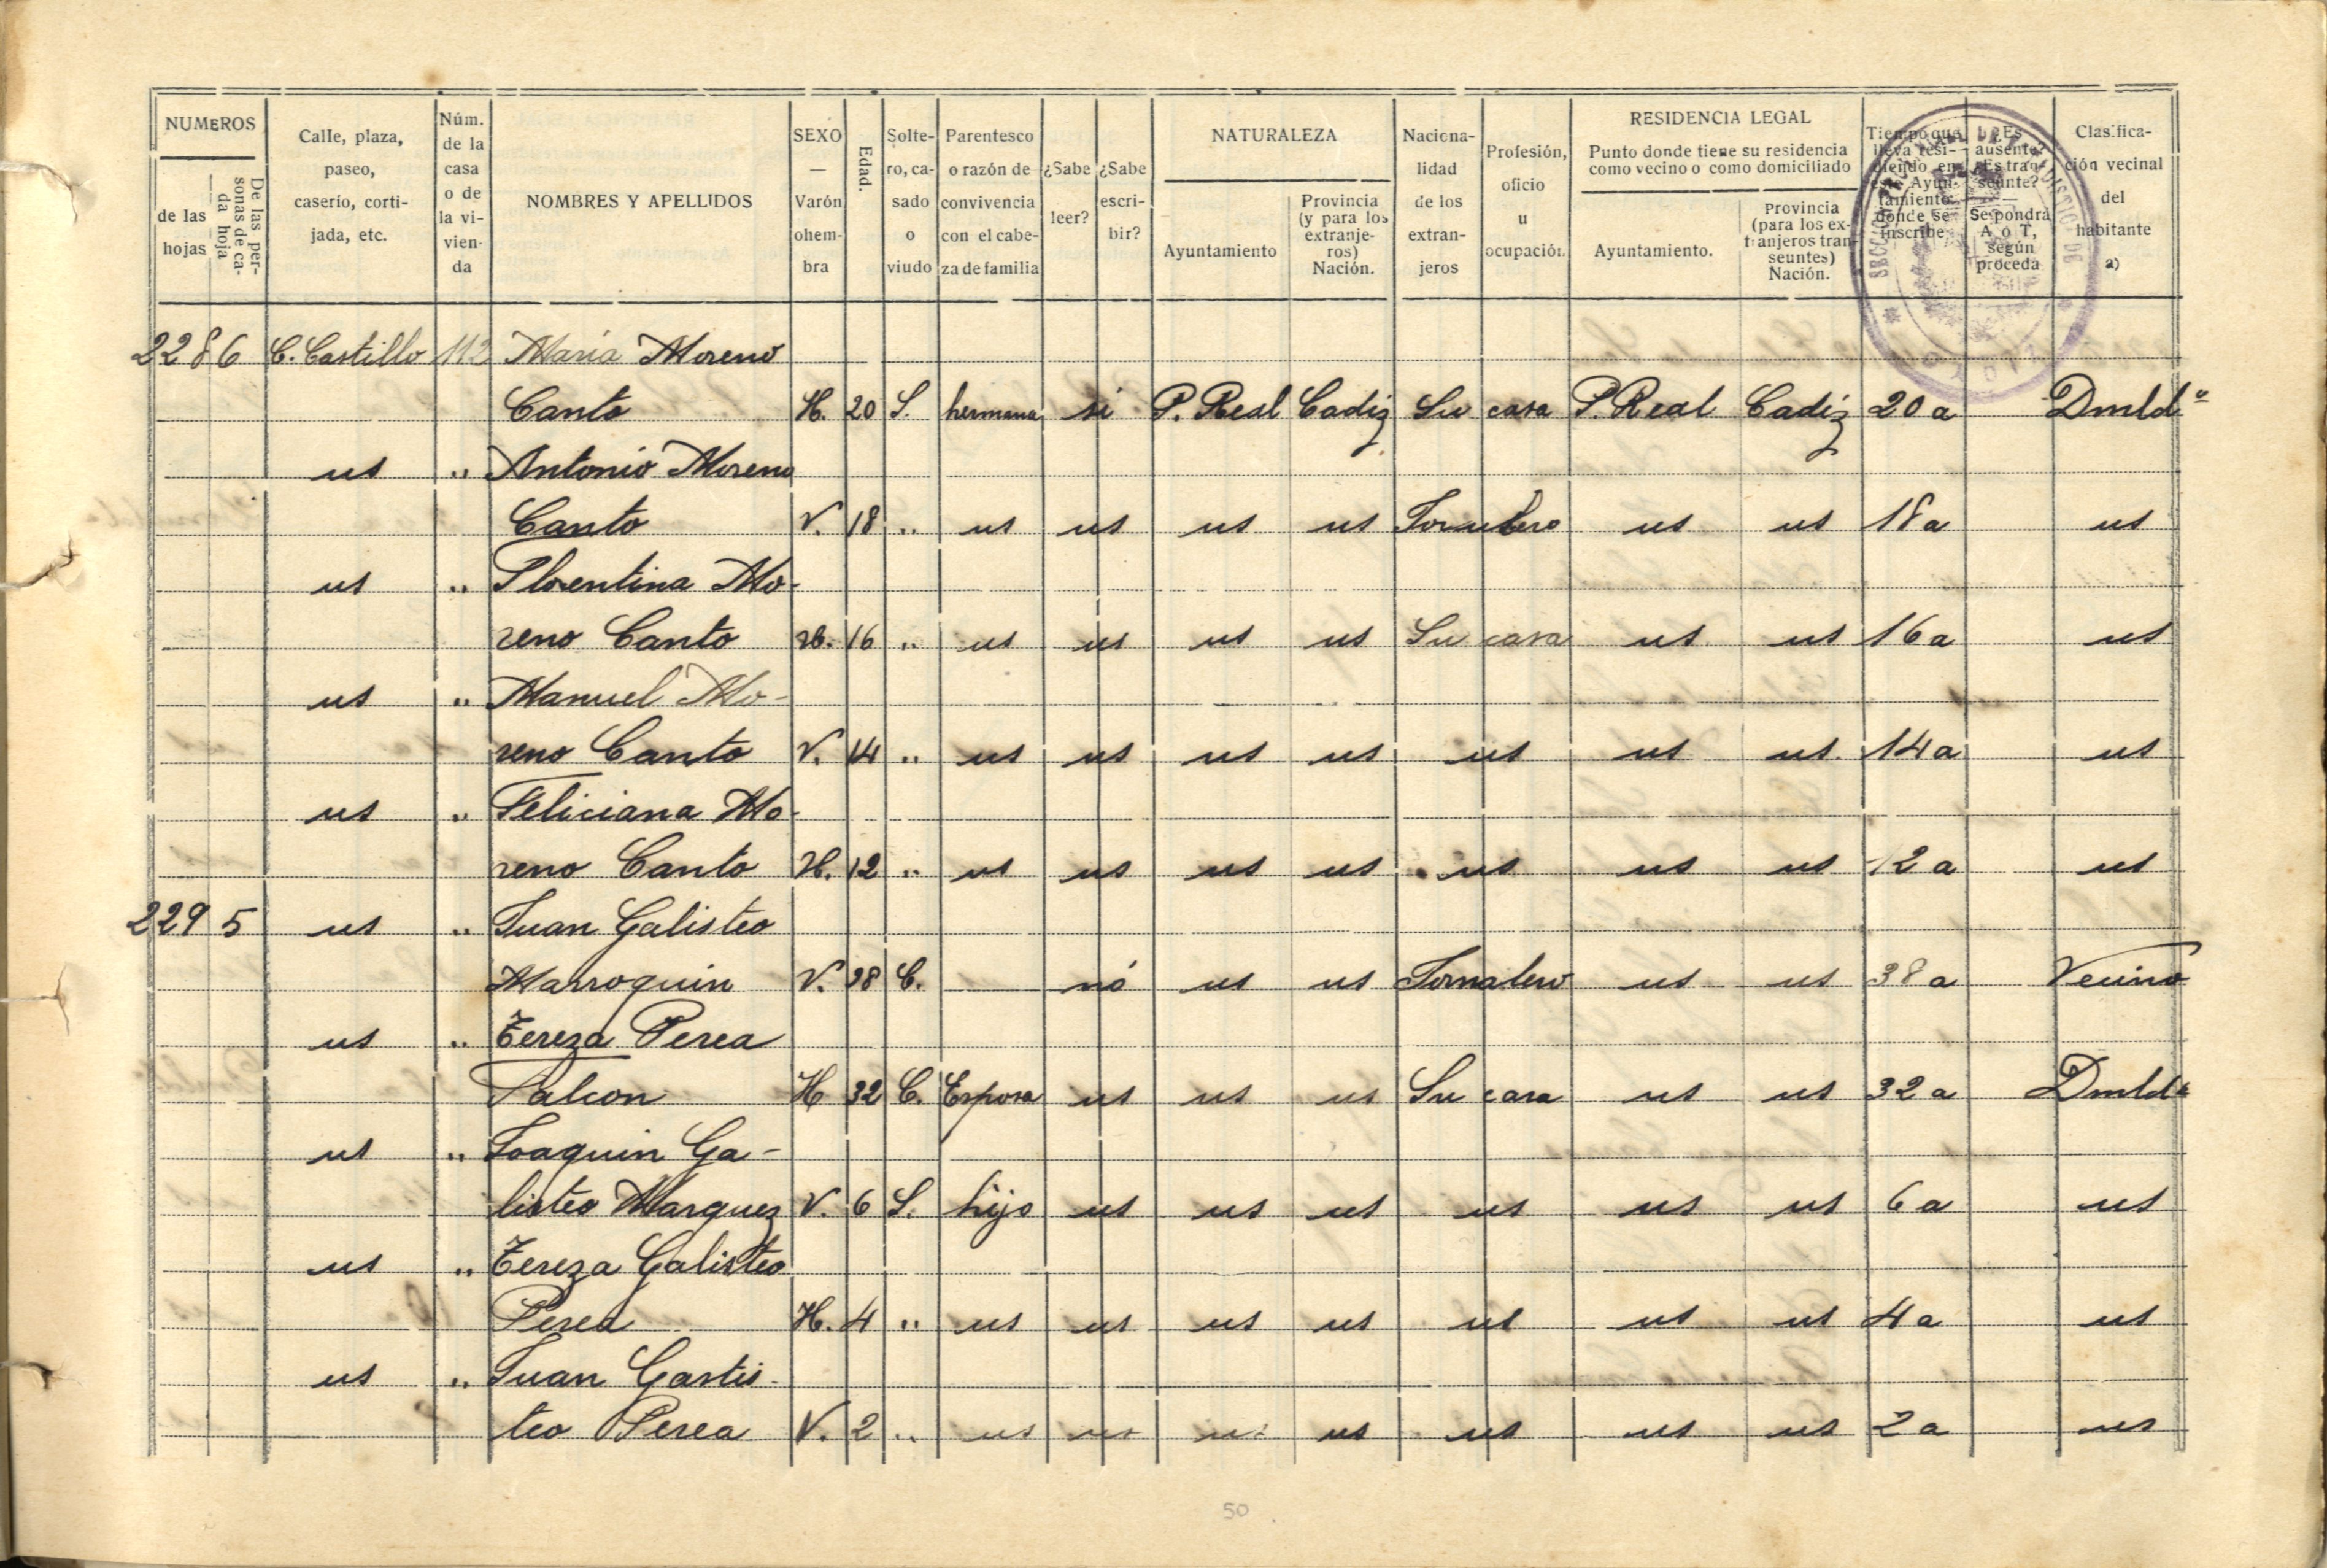 NUMEROS
de las hojas
De las personas de cada hoja
Calle, plaza, paseo, caserio, cortijada, etc.
Núm. de la casa o de la vivienda
NOMBRES Y APELLIDOS
SEXO — Varón ohembra
Edad.
Soltero, casado o viudo
Parentesco o razón de convivencia con el cabeza de familia
¿Sabe leer?
¿Sabe escribir?
NATURALEZA
Ayuntamiento
Provincia (y para los extranjeros) Nación.
Nacionalidad de los extranjeros
Profesión, oficio u ocupación.
RESIDENCIA LEGAL
Punto donde tiene su residencia como vecino o como domiciliado
Ayuntamiento.
Provincia (para los extranjeros transeuntes) Nación.
Tiempo que lleva residiendo en este Ayuntamiento donde se inscribe
¿Es ausente? ¿Es transeunte? — Se pondrá A o T, según proceda
Clasificación vecinal del habitante a)
228 6 C. Castillo 113 Maria Moreno
Canto H. 20 S. hermana si P. Real Cadiz Su casa P. Real Cadiz 20 a Dmldº
us " Antonio Moreno
Canto V. 18 " us us us us Tornalero us us 18 a us
us " Florentina Mo-
reno Canto H. 16 " us us us us Su casa us us 16 a us
us " Manuel Mo-
reno Canto V. 14 " us us us us us us us 14 a us
us " Feliciana Mo-
reno Canto H. 12 " us us us us us us us 12 a us
229 5 us " Juan Galisteo
Marroquin V. 38 C. nó us us Jornalero us us 38 a Vecino
us " Tereza Perea
Falcon H 32 C. Esposa us us us Su casa us us 32 a Dmldº
us " Joaquin Ga-
listeo Marquez V. 6 S. hijo us us us us us us 6 a us
us " Tereza Galisteo
Perea H. 4 " us us us us us us us 4 a us
us " Juan Gastis-
teo Perea V. 2 " us us us us us us us 2 a us
50